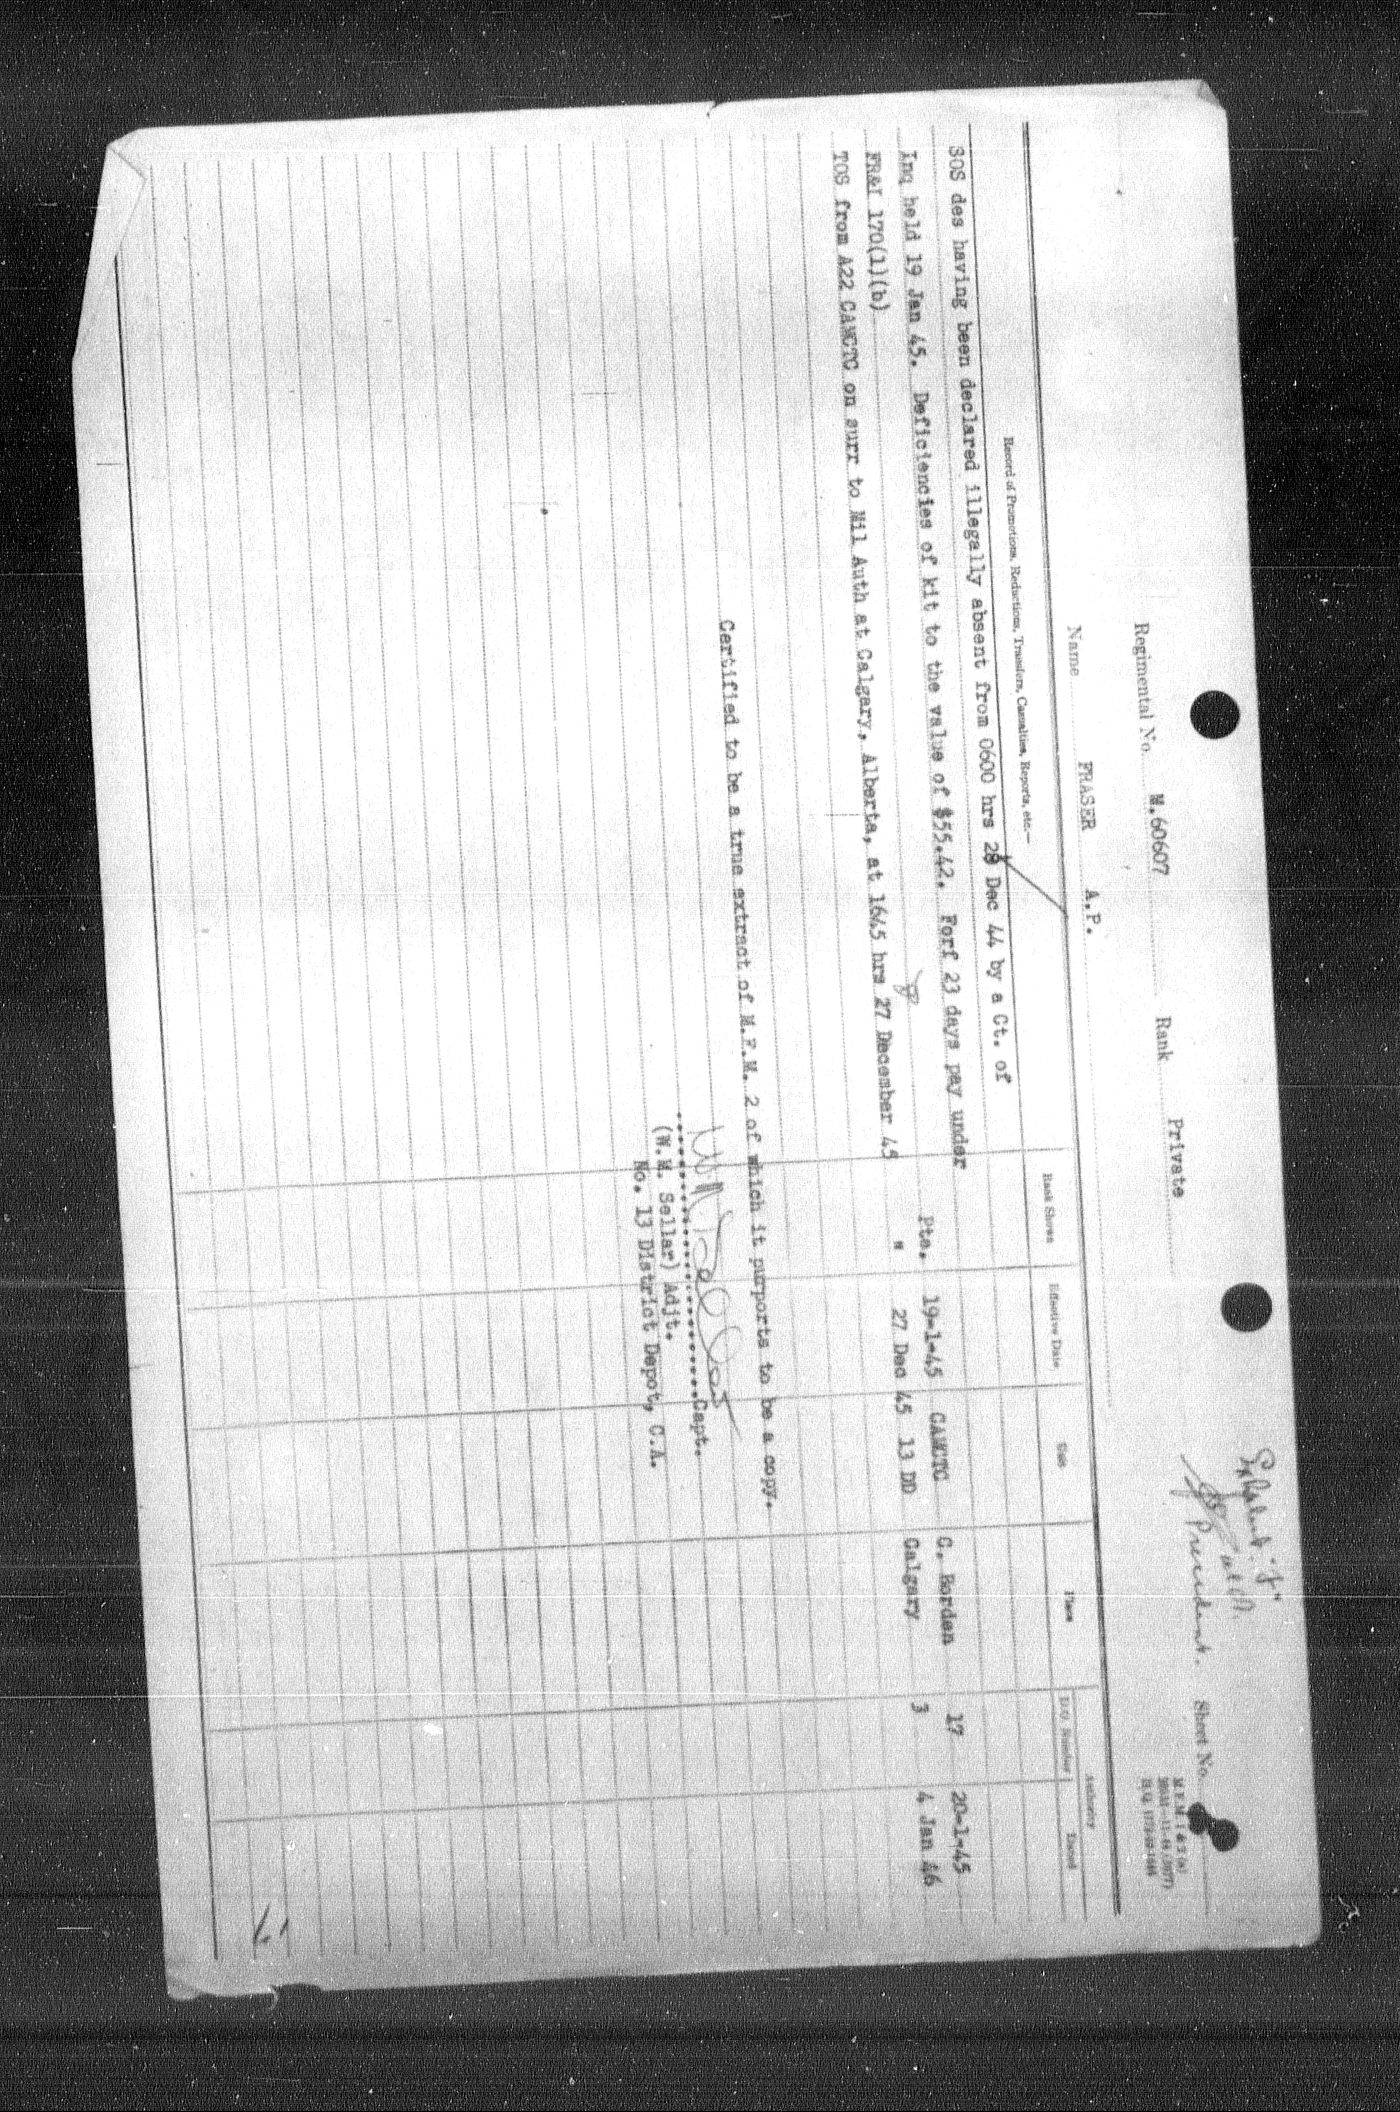 Exhibit "J"
President.
M.F.M. 1 & 2 (a)
Sheet No.
Regimental No. M.60607 Rank Private
Name FRASER A.P.
Record of Promotions, Reductions, Transfers, Casualties, Reports, etc.—
Rank Shown Effective Date Unit Place Authority
D.O. Number Dated
SOS des having been declared illegally absent from 0600 hrs 28 Dec 44 by a Ct. of
Inq held 19 Jan 45. Deficiencies of kit to the value of $55.42. Forf 23 days pay under Pte. 19-1-45 CAMCTC C. Borden 17 20-1-45
FR&I 170(1)(b)
TOS from A22 CAMCTC on surr to Mil Auth at Calgary, Alberta, at 1645 hrs 27 December 45 " 27 Dec 45 13 DD Calgary 3 4 Jan 46
Certified to be a true extract of M.F.M. 2 of which it purports to be a copy.
WM Sellar
Capt.
(W.M. Sellar) Adjt.
No. 13 District Depot, C.A.